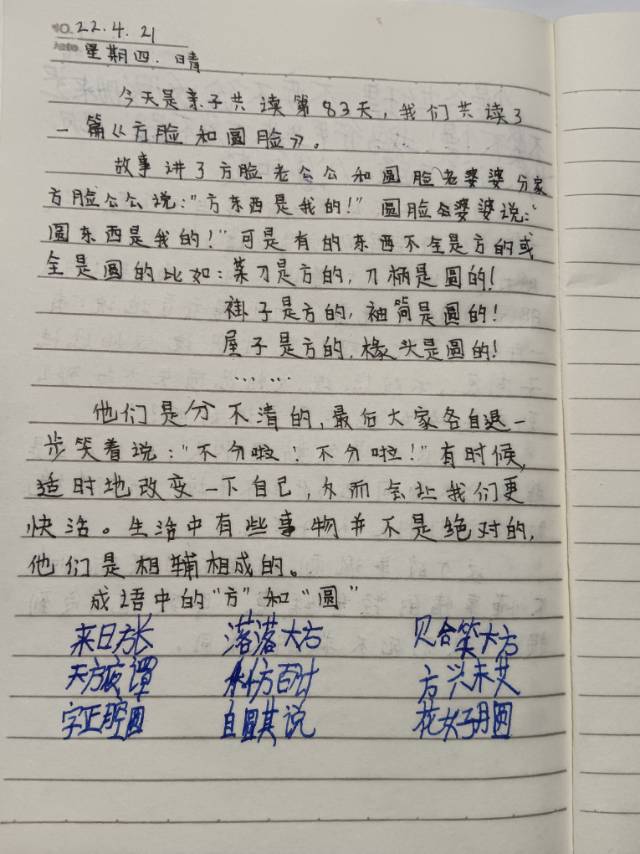 NO. 22.4.21
Date 星期四. 晴
今天是亲子共读第83天,我们共读了
一篇《方脸和圆脸》。
故事讲了方脸老公公和圆脸老婆婆分家
方脸公公说:"方东西是我的!"圆脸婆婆说:"
圆东西是我的!"可是有的东西不全是方的或
全是圆的比如:菜刀是方的,刀柄是圆的!
褂子是方的,袖筒是圆的!
屋子是方的,椽头是圆的!
……
他们是分不清的,最后大家各自退一
步笑着说:"不分啦!不分啦!"有时候,
适时地改变一下自己,反而会让我们更
快活。生活中有些事物并不是绝对的,
他们是相辅相成的。
成语中的"方"和"圆"
来日方长 落落大方 贝合笑大方
天方夜谭 千方百计 方兴未艾
字正腔圆 自圆其说 花好月圆